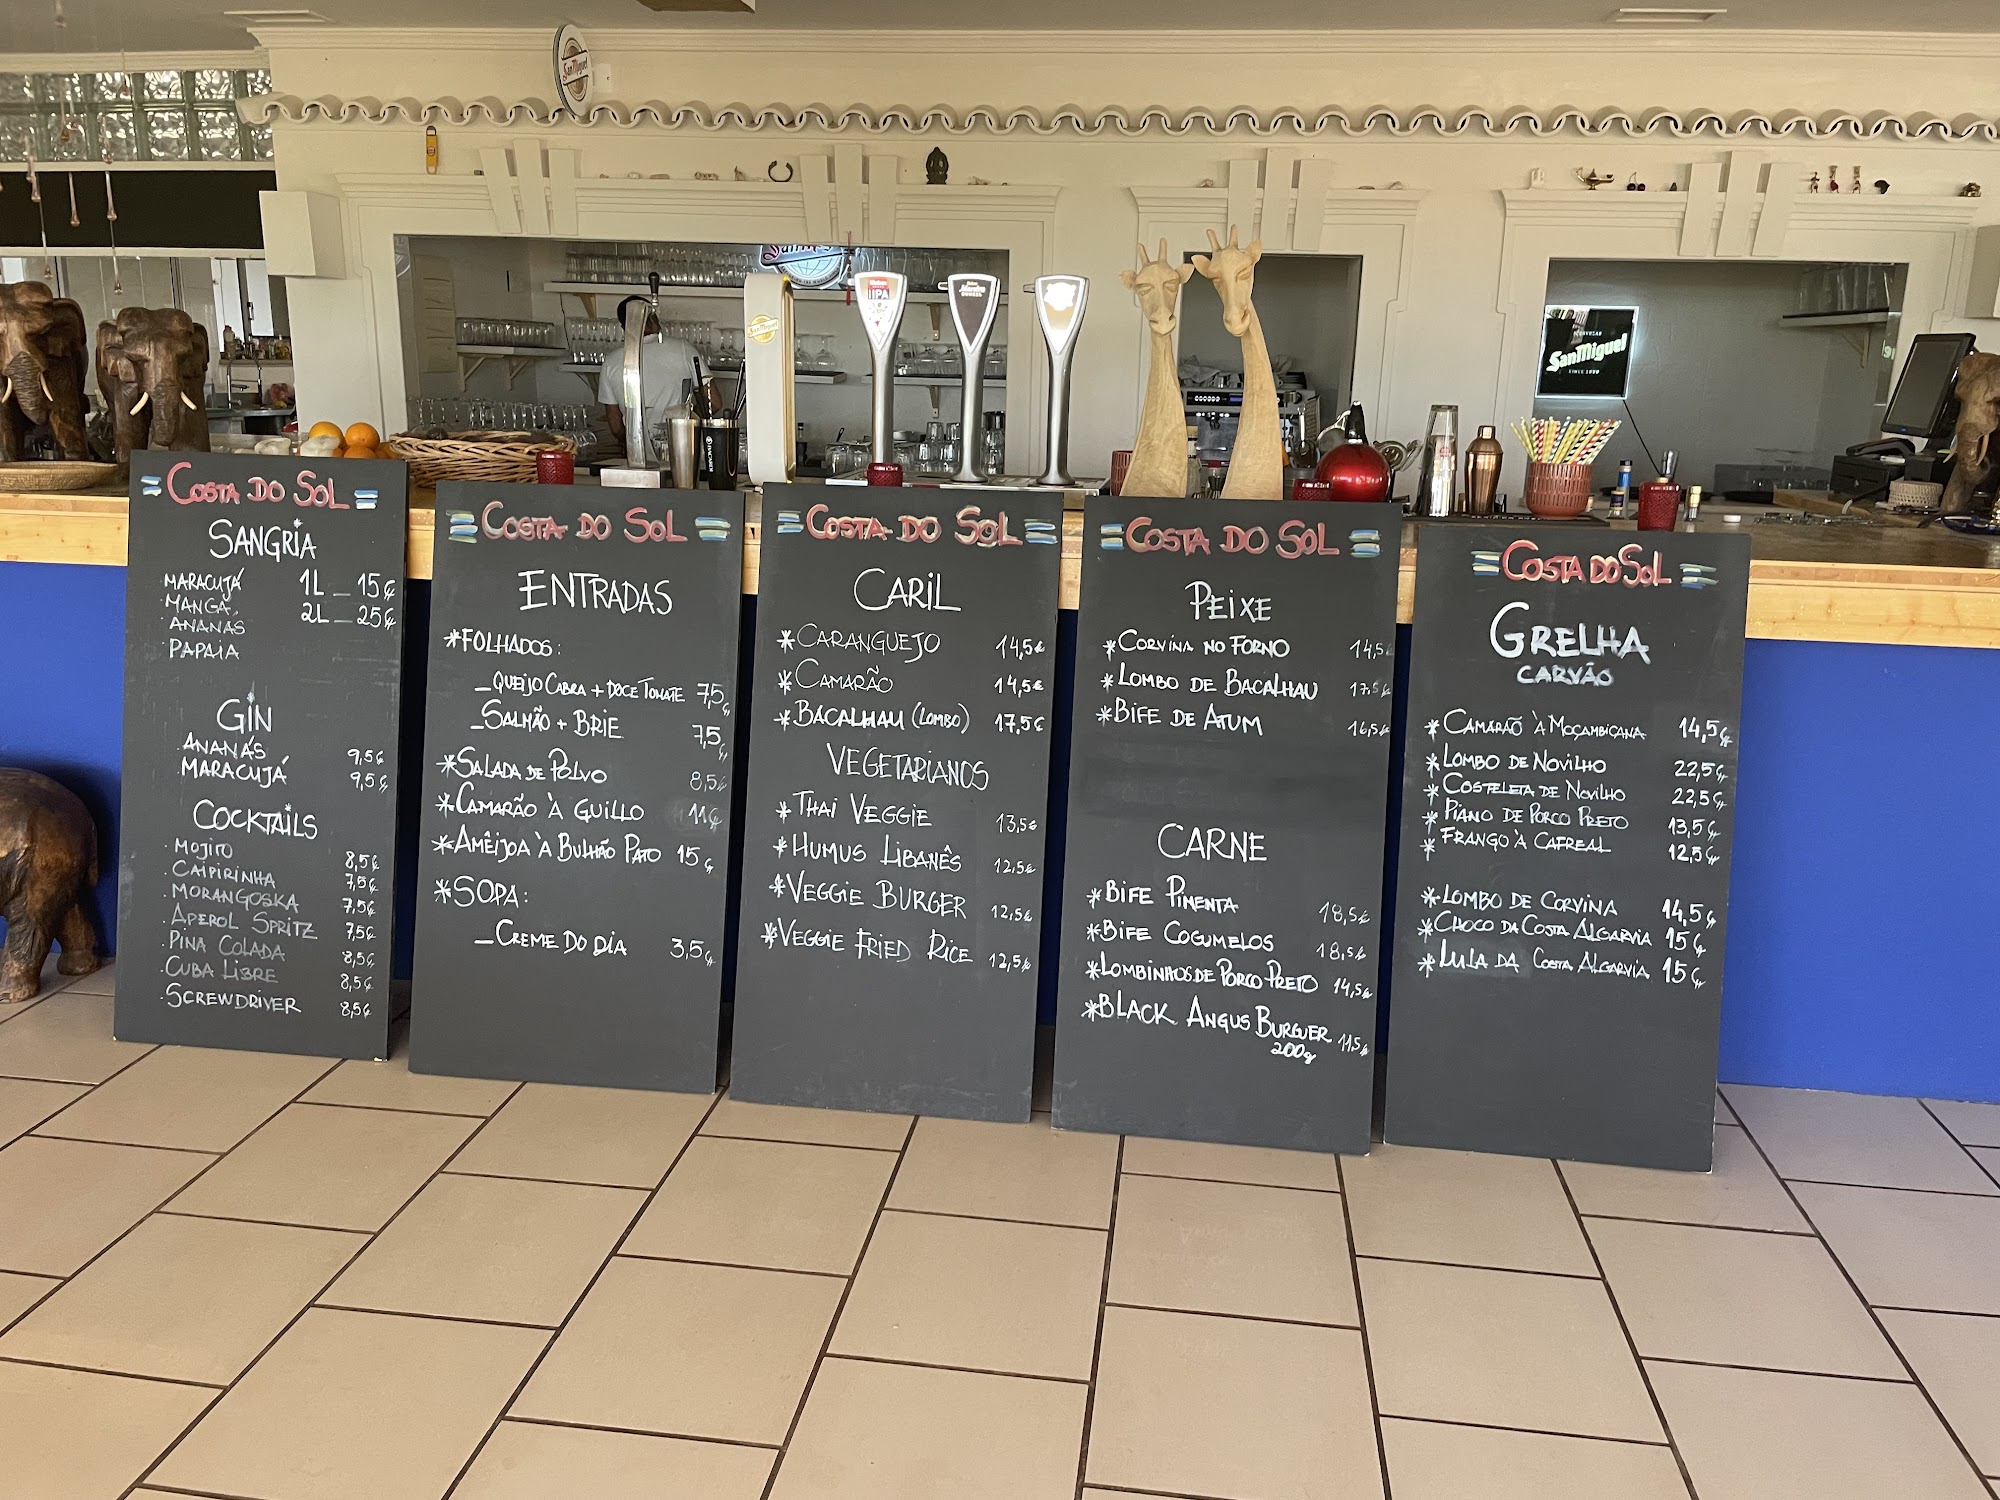 San Miguel
San Miguel
IPA
San Miguel
SanMiguel
SINCE 1890
COSTA DO SOL
SANGRIA
MARACUJÁ 1L _ 15€
MANGA, 2L _ 25€
ANANÁS
PAPAIA
GIN
ANANÁS 9,5€
MARACUJÁ 9,5€
COCKTAILS
. MOJITO 8,5€
. CAIPIRINHA 7,5€
. MORANGOSKA 7,5€
. APEROL SPRITZ 7,5€
. PINA COLADA 8,5€
. CUBA LIBRE 8,5€
. SCREWDRIVER 8,5€
COSTA DO SOL
ENTRADAS
*FOLHADOS:
_QUEIJO CABRA + DOCE TOMATE 7,5€
_SALMÃO + BRIE 7,5€
*SALADA DE POLVO 8,5€
*CAMARÃO À GUILLO 11€
*AMÊIJOA À BULHÃO PATO 15€
*SOPA:
_CREME DO DIA 3,5€
COSTA DO SOL
CARIL
*CARANGUEJO 14,5€
*CAMARÃO 14,5€
*BACALHAU (LOMBO) 17,5€
VEGETARIANOS
*THAI VEGGIE 13,5€
*HUMUS LIBANÊS 12,5€
*VEGGIE BURGER 12,5€
*VEGGIE FRIED RICE 12,5€
COSTA DO SOL
PEIXE
*CORVINA NO FORNO 14,5€
*LOMBO DE BACALHAU 17,5€
*BIFE DE ATUM 16,5€
CARNE
*BIFE PIMENTA 18,5€
*BIFE COGUMELOS 18,5€
*LOMBINHOS DE PORCO PRETO 14,5€
*BLACK ANGUS BURGUER 11,5€
200g
COSTA DO SOL
GRELHA
CARVÃO
*CAMARÃO À MOÇAMBIÇANA 14,5€
*LOMBO DE NOVILHO 22,5€
*COSTELETA DE NOVILHO 22,5€
*PIANO DE PORCO PRETO 13,5€
*FRANGO À CAFREAL 12,5€
*LOMBO DE CORVINA 14,5€
*CHOCO DA COSTA ALGARVIA 15€
*LULA DA COSTA ALGARVIA 15€